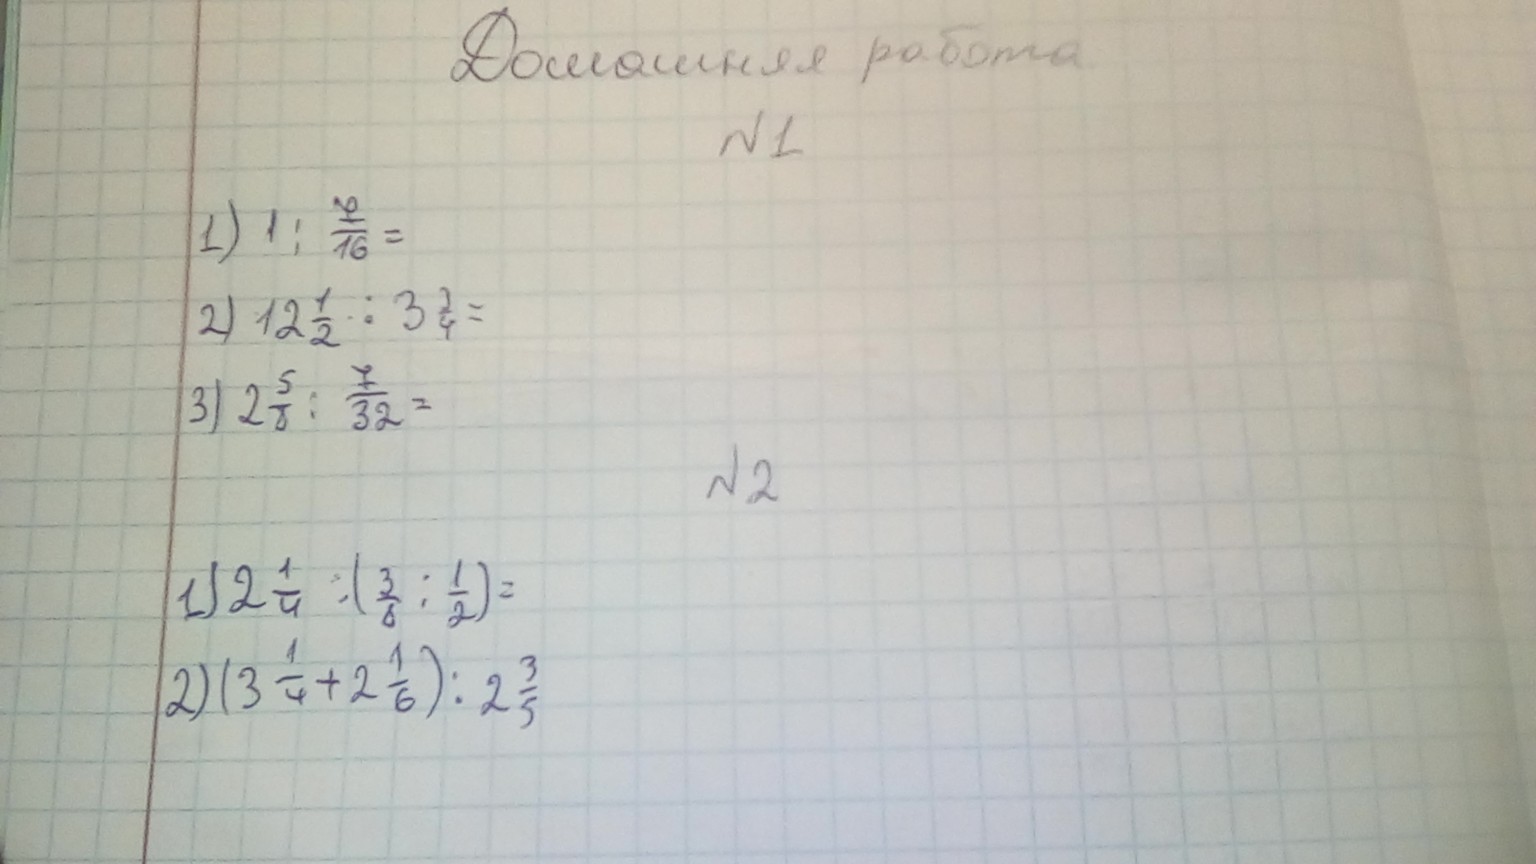 Домашняя работа
№1
1) 1 : 7/16 =
2) 12 1/2 : 3 3/4 =
3) 2 5/8 : 7/32 =
№2
1) 2 1/4 : (3/8 : 1/2) =
2) (3 1/4 + 2 1/6) : 2 3/5